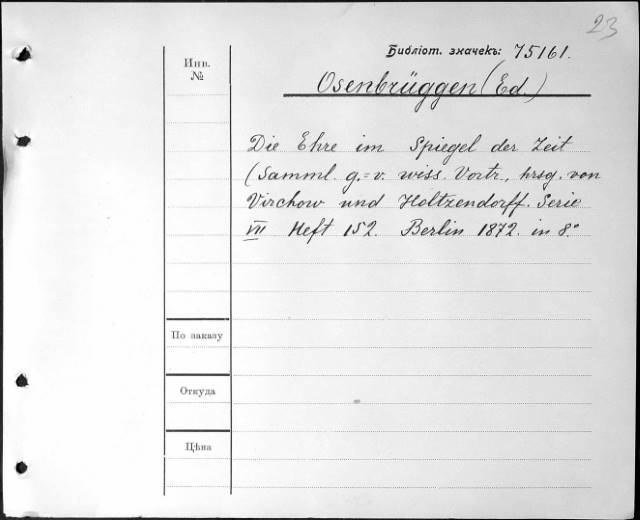 23
Библіот. значекъ: 75161.
Инв.
№
Osenbrüggen (Ed.)
Die Ehre im Spiegel der Zeit
(Samml. g.=v. wiss. Vortr., hrsg. von
Virchow und Holtzendorff. Serie
VII Heft 152. Berlin 1872. in 8.°
По заказу
Откуда
Цѣна